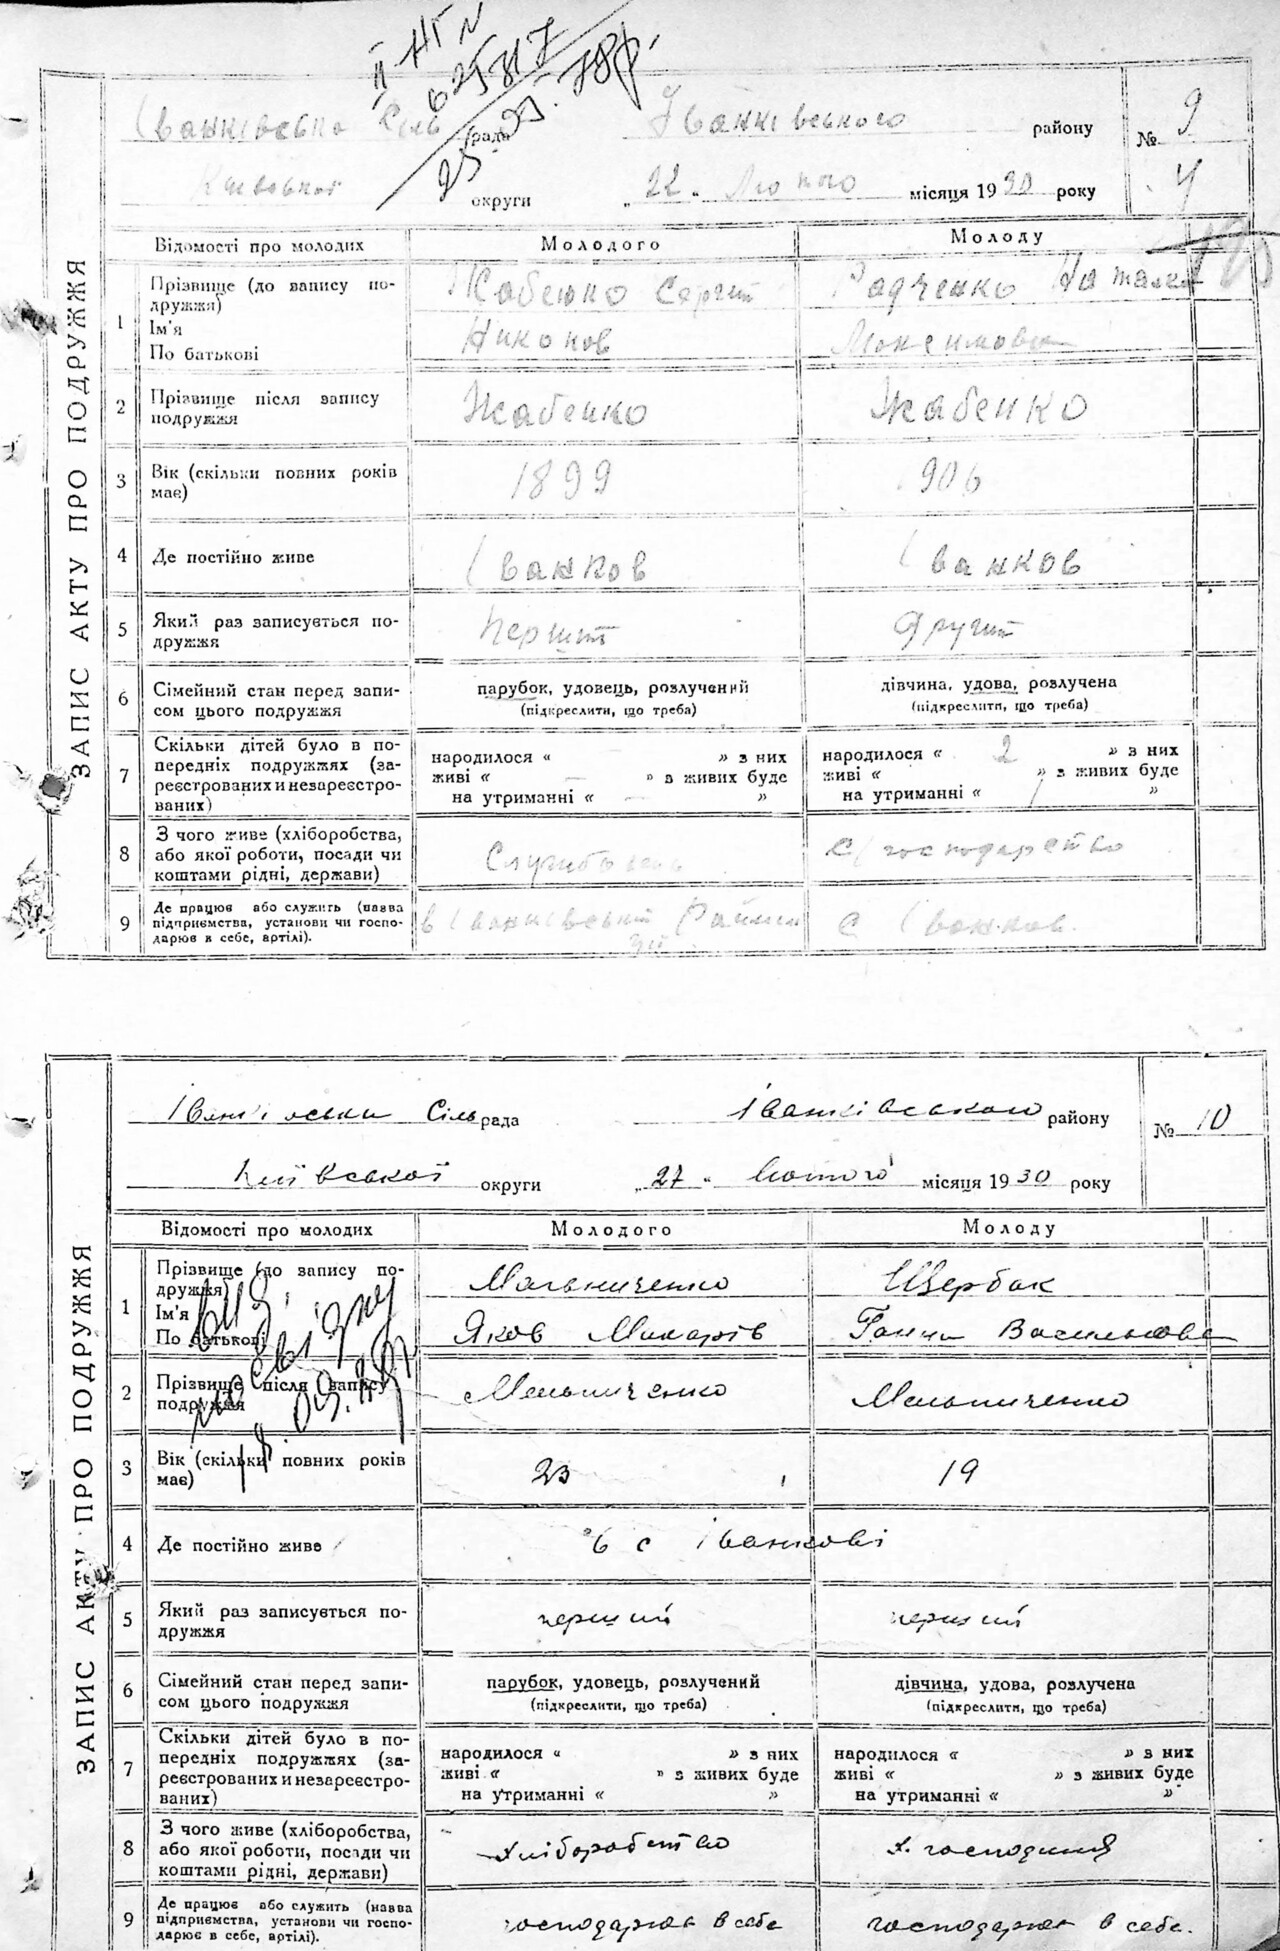 ЗАПИС АКТУ ПРО ПОДРУЖЖЯ
II НГ N
625317
Іванківська Сіль рада Іванківського району № 9
Київської округи „22" Лютого місяця 1930 року
Відомості про молодих Молодого Молоду
1 Прізвище (до запису подружжя) Жабенко Сергій Радченко Наталка
Ім'я
По батькові Никонов Максимовна
2 Прізвище після запису подружжя Жабенко Жабенко
3 Вік (скільки повних років має) 1899 906
4 Де постійно живе Іванков Іванков
5 Який раз записується подружжя Перший Другий
6 Сімейний стан перед записом цього подружжя парубок, удовець, розлучений дівчина, удова, розлучена
(підкреслити, що треба) (підкреслити, що треба)
7 Скільки дітей було в попередніх подружжях (зареєстрованих и незареєстрованих)
народилося « — » з них народилося « 2 » з них
живі « — » з живих буде живі « » з живих буде
на утриманні « — » на утриманні « 1 »
8 З чого живе (хліборобства, або якої роботи, посади чи коштами рідні, держави) Службовець С/господарство
9 Де працює або служить (назва підприємства, установи чи господарює в себе, артілі). в Іванківській с Іванков.
ЗАПИС АКТУ ПРО ПОДРУЖЖЯ
Іванківська Сіль рада Іванківського району № 10
Київської округи „27" Лютого місяця 1930 року
Відомості про молодих Молодого Молоду
1 Прізвище (до запису подружжя) Мельниченко Щербак
Ім'я
По батькові Яков Макарів Ганна Васильовна
2 Прізвище після запису подружжя Мельниченко Мельниченко
3 Вік (скільки повних років має) 23 19
4 Де постійно живе в с Іванкові
5 Який раз записується подружжя перший перший
6 Сімейний стан перед записом цього подружжя парубок, удовець, розлучений дівчина, удова, розлучена
(підкреслити, що треба) (підкреслити, що треба)
7 Скільки дітей було в попередніх подружжях (зареєстрованих и незареєстрованих)
народилося « » з них народилося « » з них
живі « » з живих буде живі « » з живих буде
на утриманні « » на утриманні « »
8 З чого живе (хліборобства, або якої роботи, посади чи коштами рідні, держави) Хліборобство х. господиня
9 Де працює або служить (назва підприємства, установи чи господарює в себе, артілі). господарює в себе господарює в себе.